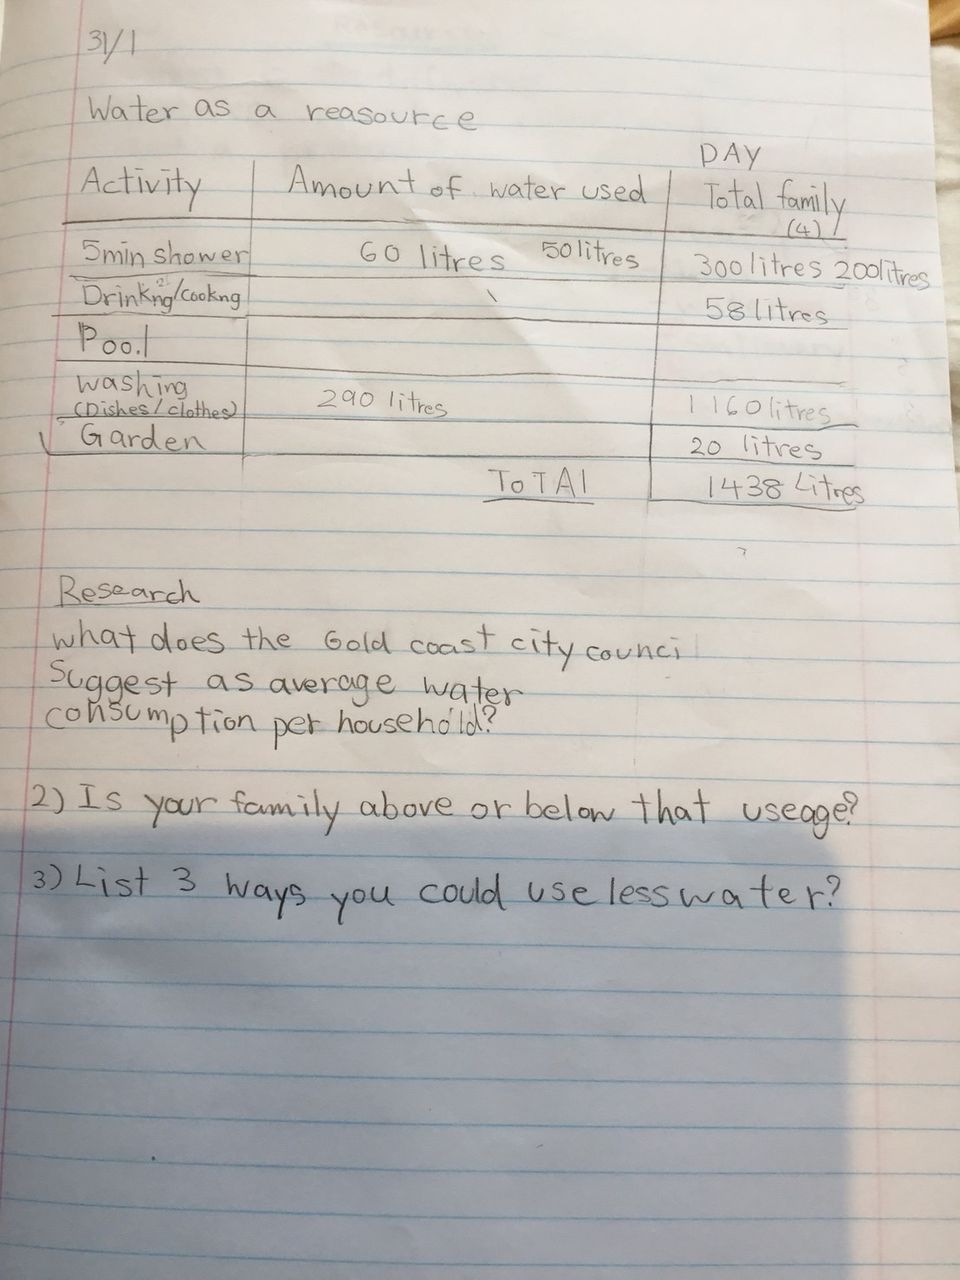 31/1
Water as a reasource
DAY
Activity Amount of water used Total family
(4)
5min shower 60 litres 50litres 300litres 200litres
Drinkng/cookng 58litres
Pool
washing
(Dishes/clothes) 290 litres 1160litres
Garden 20 litres
ToTAl 1438 Litres
Research
what does the Gold coast city counci
Suggest as average water
consumption per household?
2) Is your family above or below that useage?
3) List 3 ways you could use less water?